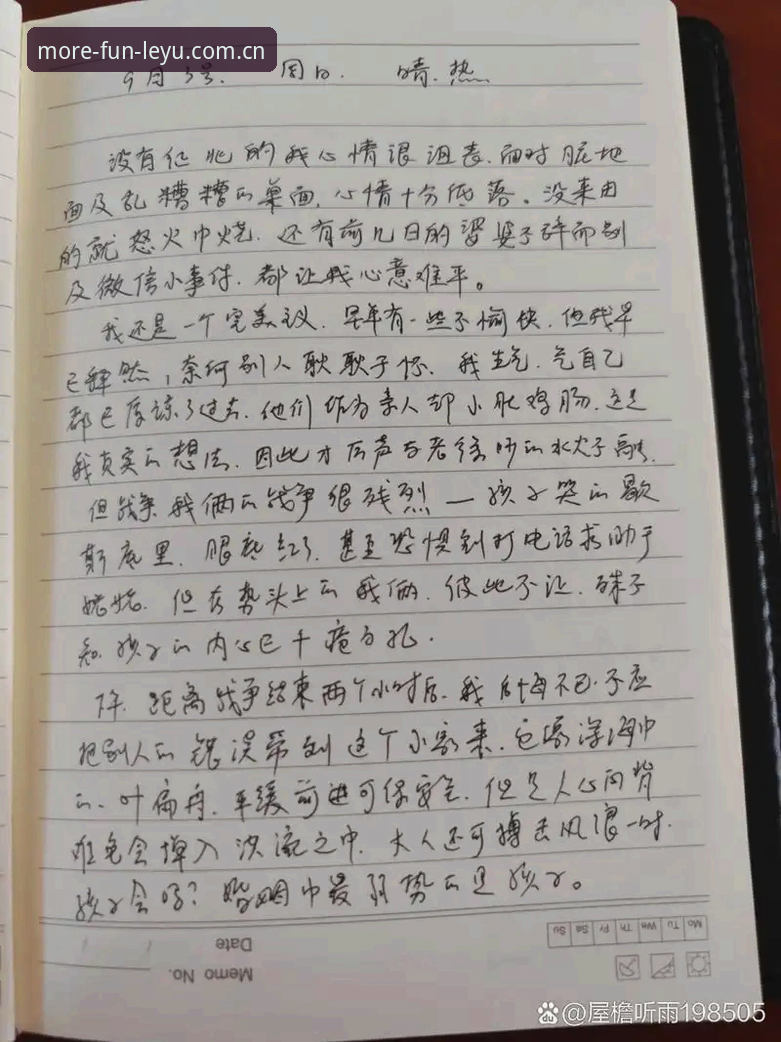 more-fun-leyu.com.cn
9月3号. 周日. 晴.热
没有任 的我心情很沮丧.面对脏地
面及乱糟糟的桌面,心情十分低落。没来由
的就怒火中烧.还有前几日的婆婆 碎而别
及微信小事件.都让我心意难平。
我还是一个完美 .早年有一些不愉快.但我早
已释然,奈何别人耿耿于怀.我生气.气自己
都已原谅了过去.他们作为亲人却小肚鸡肠.这是
我真实的想法.因此才 声与老徐吵的水火不融.
但战争我俩的战争很残烈—孩子哭的歇
斯底里.眼底红了.甚至恐惧到打电话求助于
姥姥.但在势头上的我俩.彼此不让.殊不
知孩子的内心已千疮百孔.
下午.距离战争结束两个小时后.我后悔不已.不应
把别人的错误带到这个小家来.它像深海中
的一叶扁舟.平缓前进可保安全.但是人心向背
难免会掉入 流之中.大人还可搏击风浪一时.
孩子会吗?婚姻中最弱势的是孩子。
Mo Tu We Th Fr Sa Su
Memo No.
Date
@屋檐听雨198505